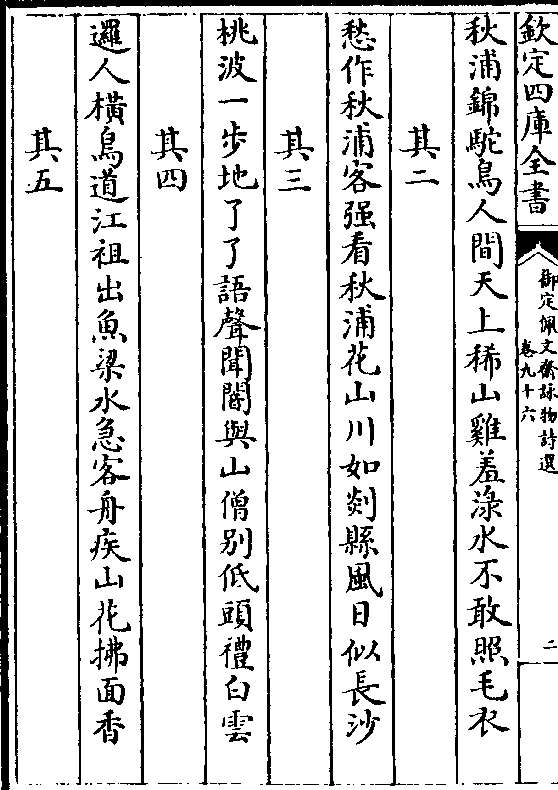 欽定四庫全書
御定佩文齋詠物詩選
卷九十六
二
秋浦錦駝鳥人間天上稀山雞羞渌水不敢照毛衣
其二
愁作秋浦客强看秋浦花山川如剡縣風日似長沙
其三
桃波一步地了了語聲聞闇與山僧别低頭禮白雲
其四
邏人橫鳥道江祖出魚梁水急客舟疾山花拂面香
其五